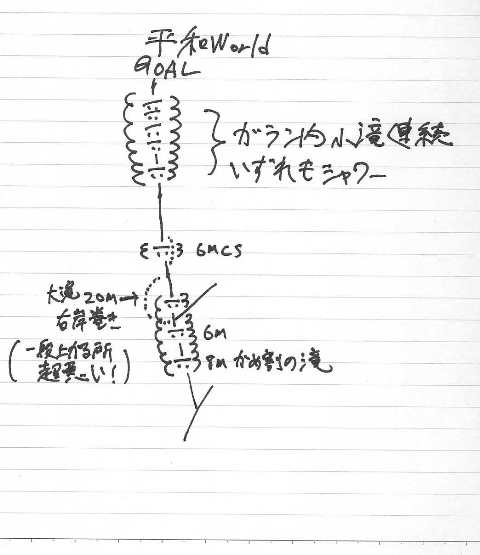 平和World
GOAL
ガラン内小滝連続
いずれもシャワー
6MCS
大滝20M→
右岸巻き
(一段上がる所
超悪い!)
6M
8M かめ割の滝